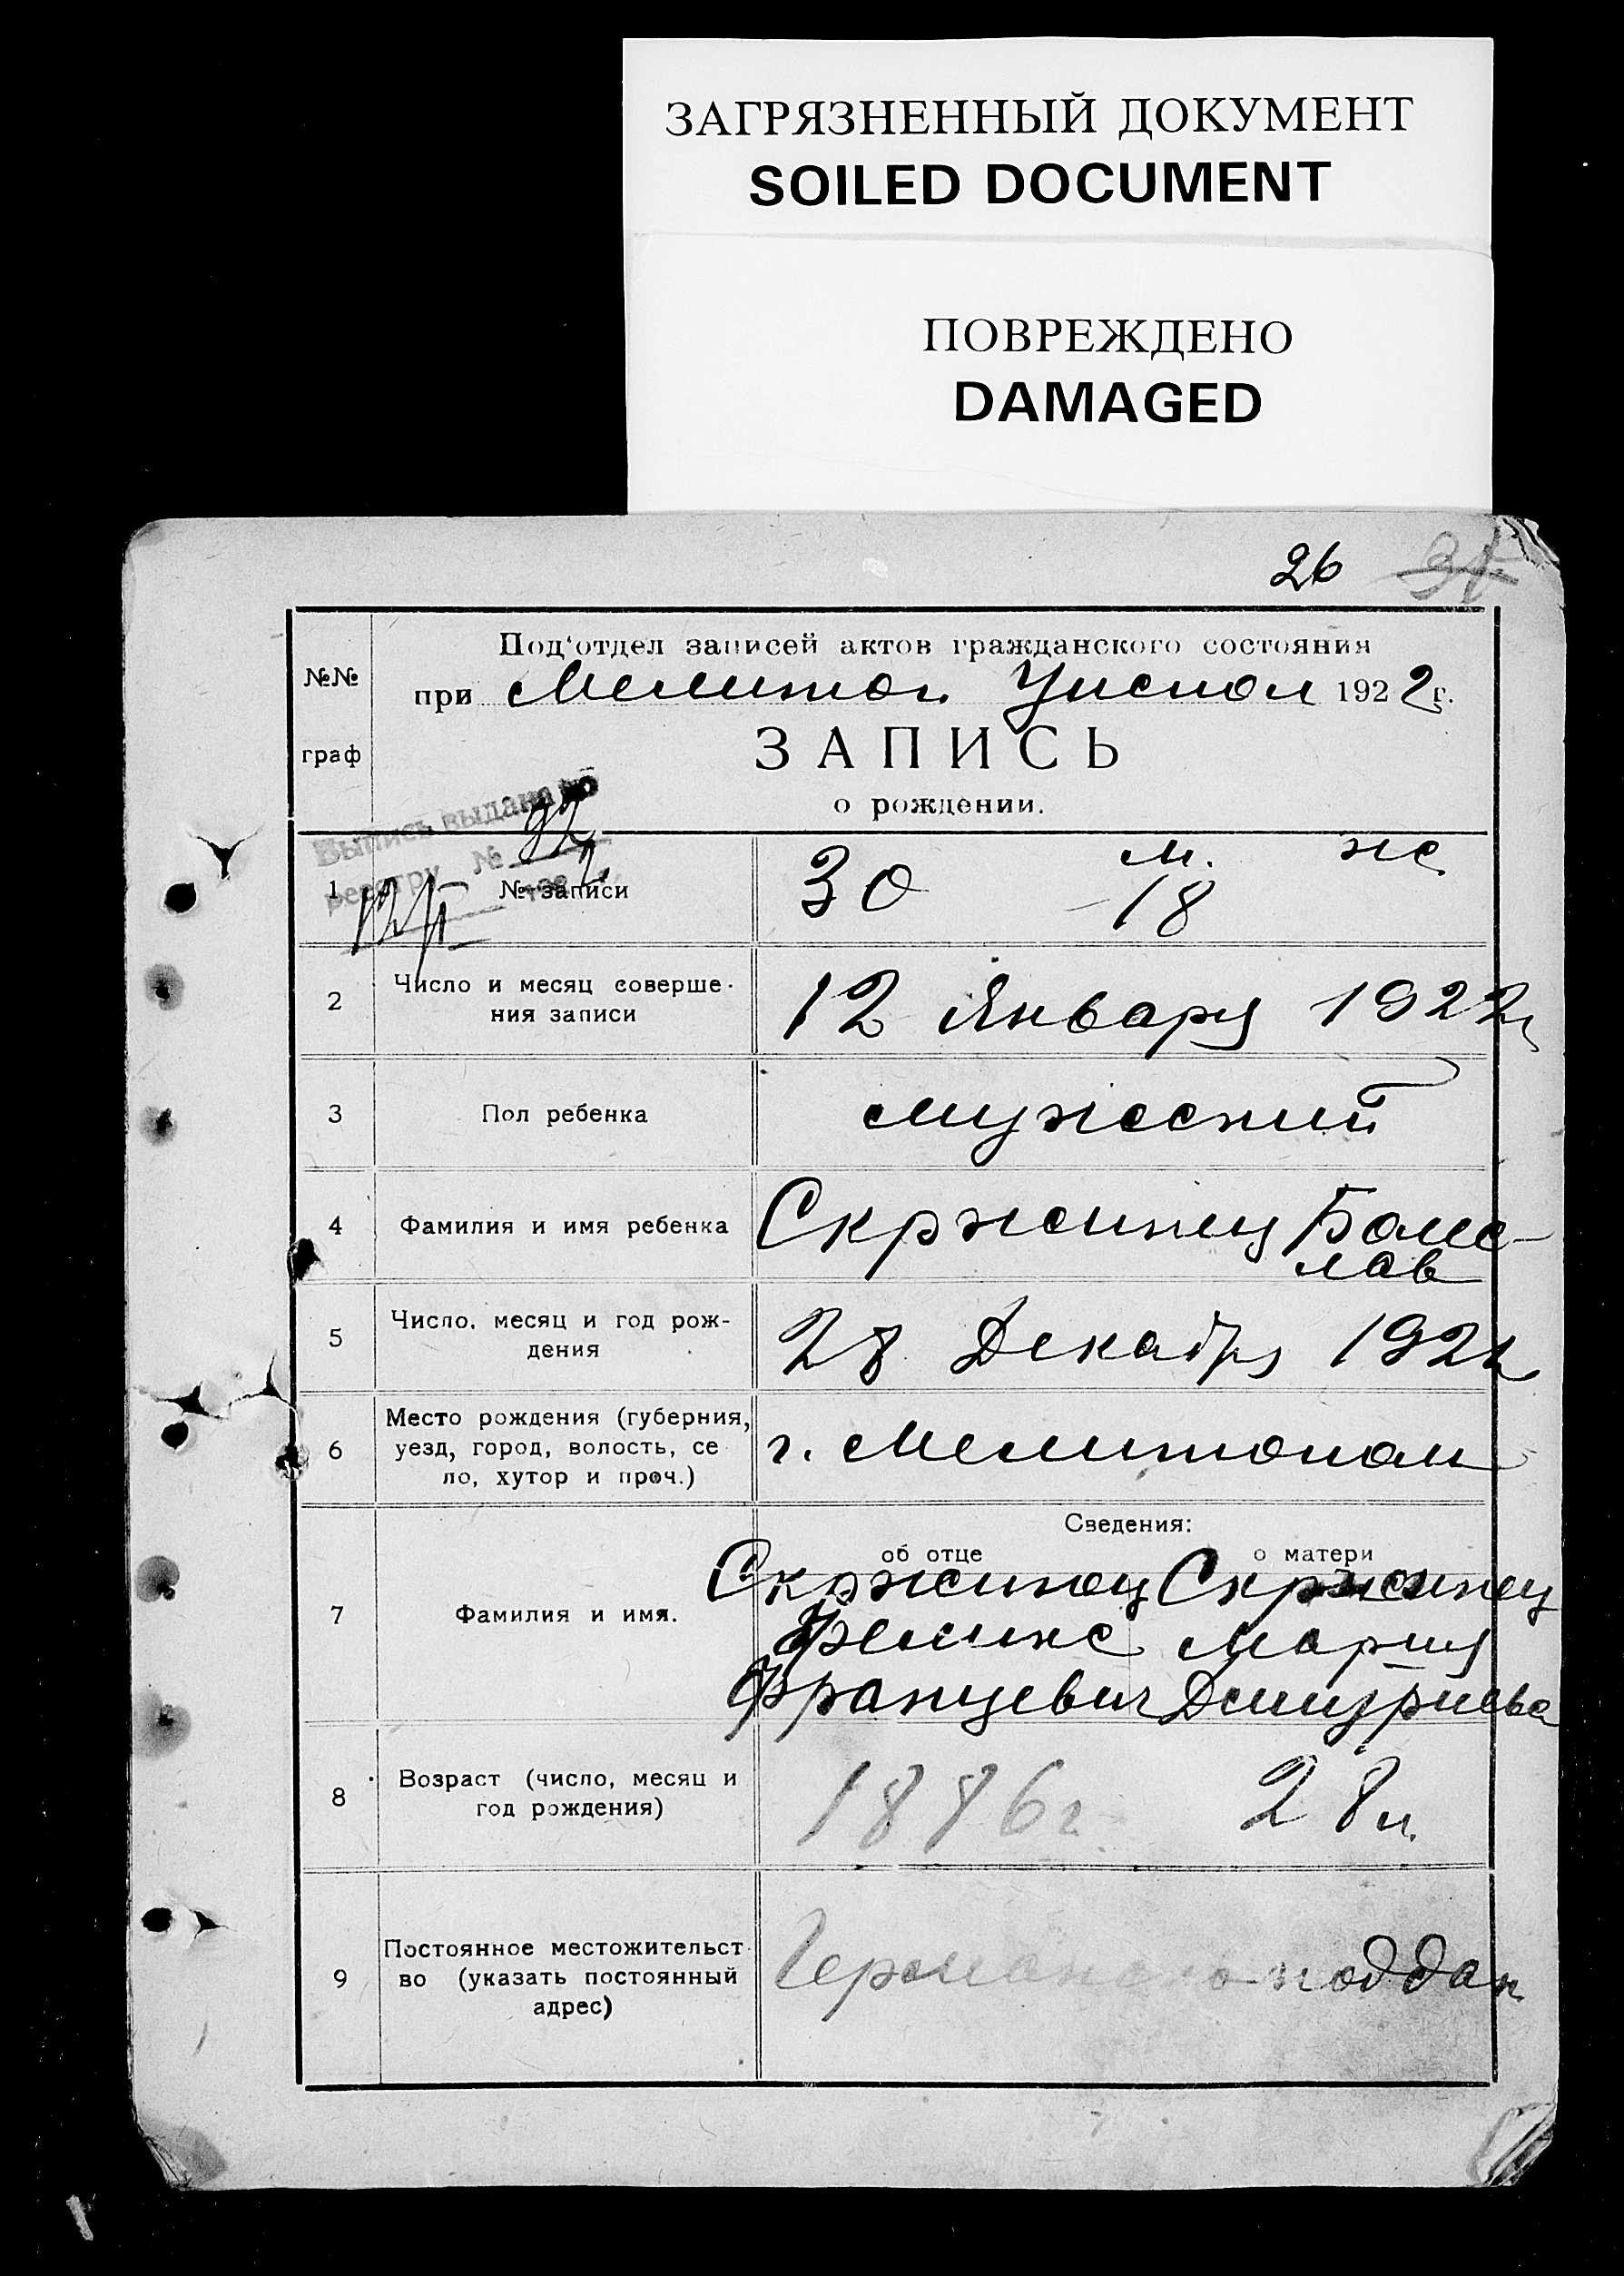 ЗАГРЯЗНЕННЫЙ ДОКУМЕНТ
SOILED DOCUMENT
ПОВРЕЖДЕНО
DAMAGED
26
№№
граф
Под'отдел записей актов гражданского состояния
при Мелитоп. Уиспол 1922г.
ЗАПИСЬ
о рождении.
Выпись выдана по
реестру № 32
1
№ записи
30
м.
18
же
2
Число и месяц соверше-
ния записи
12 Января 1922г
3
Пол ребенка
мужеский
4
Фамилия и имя ребенка
Скржинец Боле-
лав
5
Число, месяц и год рож-
дения
28 Декабря 192
6
Место рождения (губерния,
уезд, город, волость, се
ло, хутор и проч.)
г. Мелитополь
7
Фамилия и имя.
Сведения:
об отце
о матери
Скржинец Скржинец
Феликс Мария
Францевич Дмитриева
8
Возраст (число, месяц и
год рождения)
1886г. 28 л.
9
Постоянное местожительст
во (указать постоянный
адрес)
Германско поддан